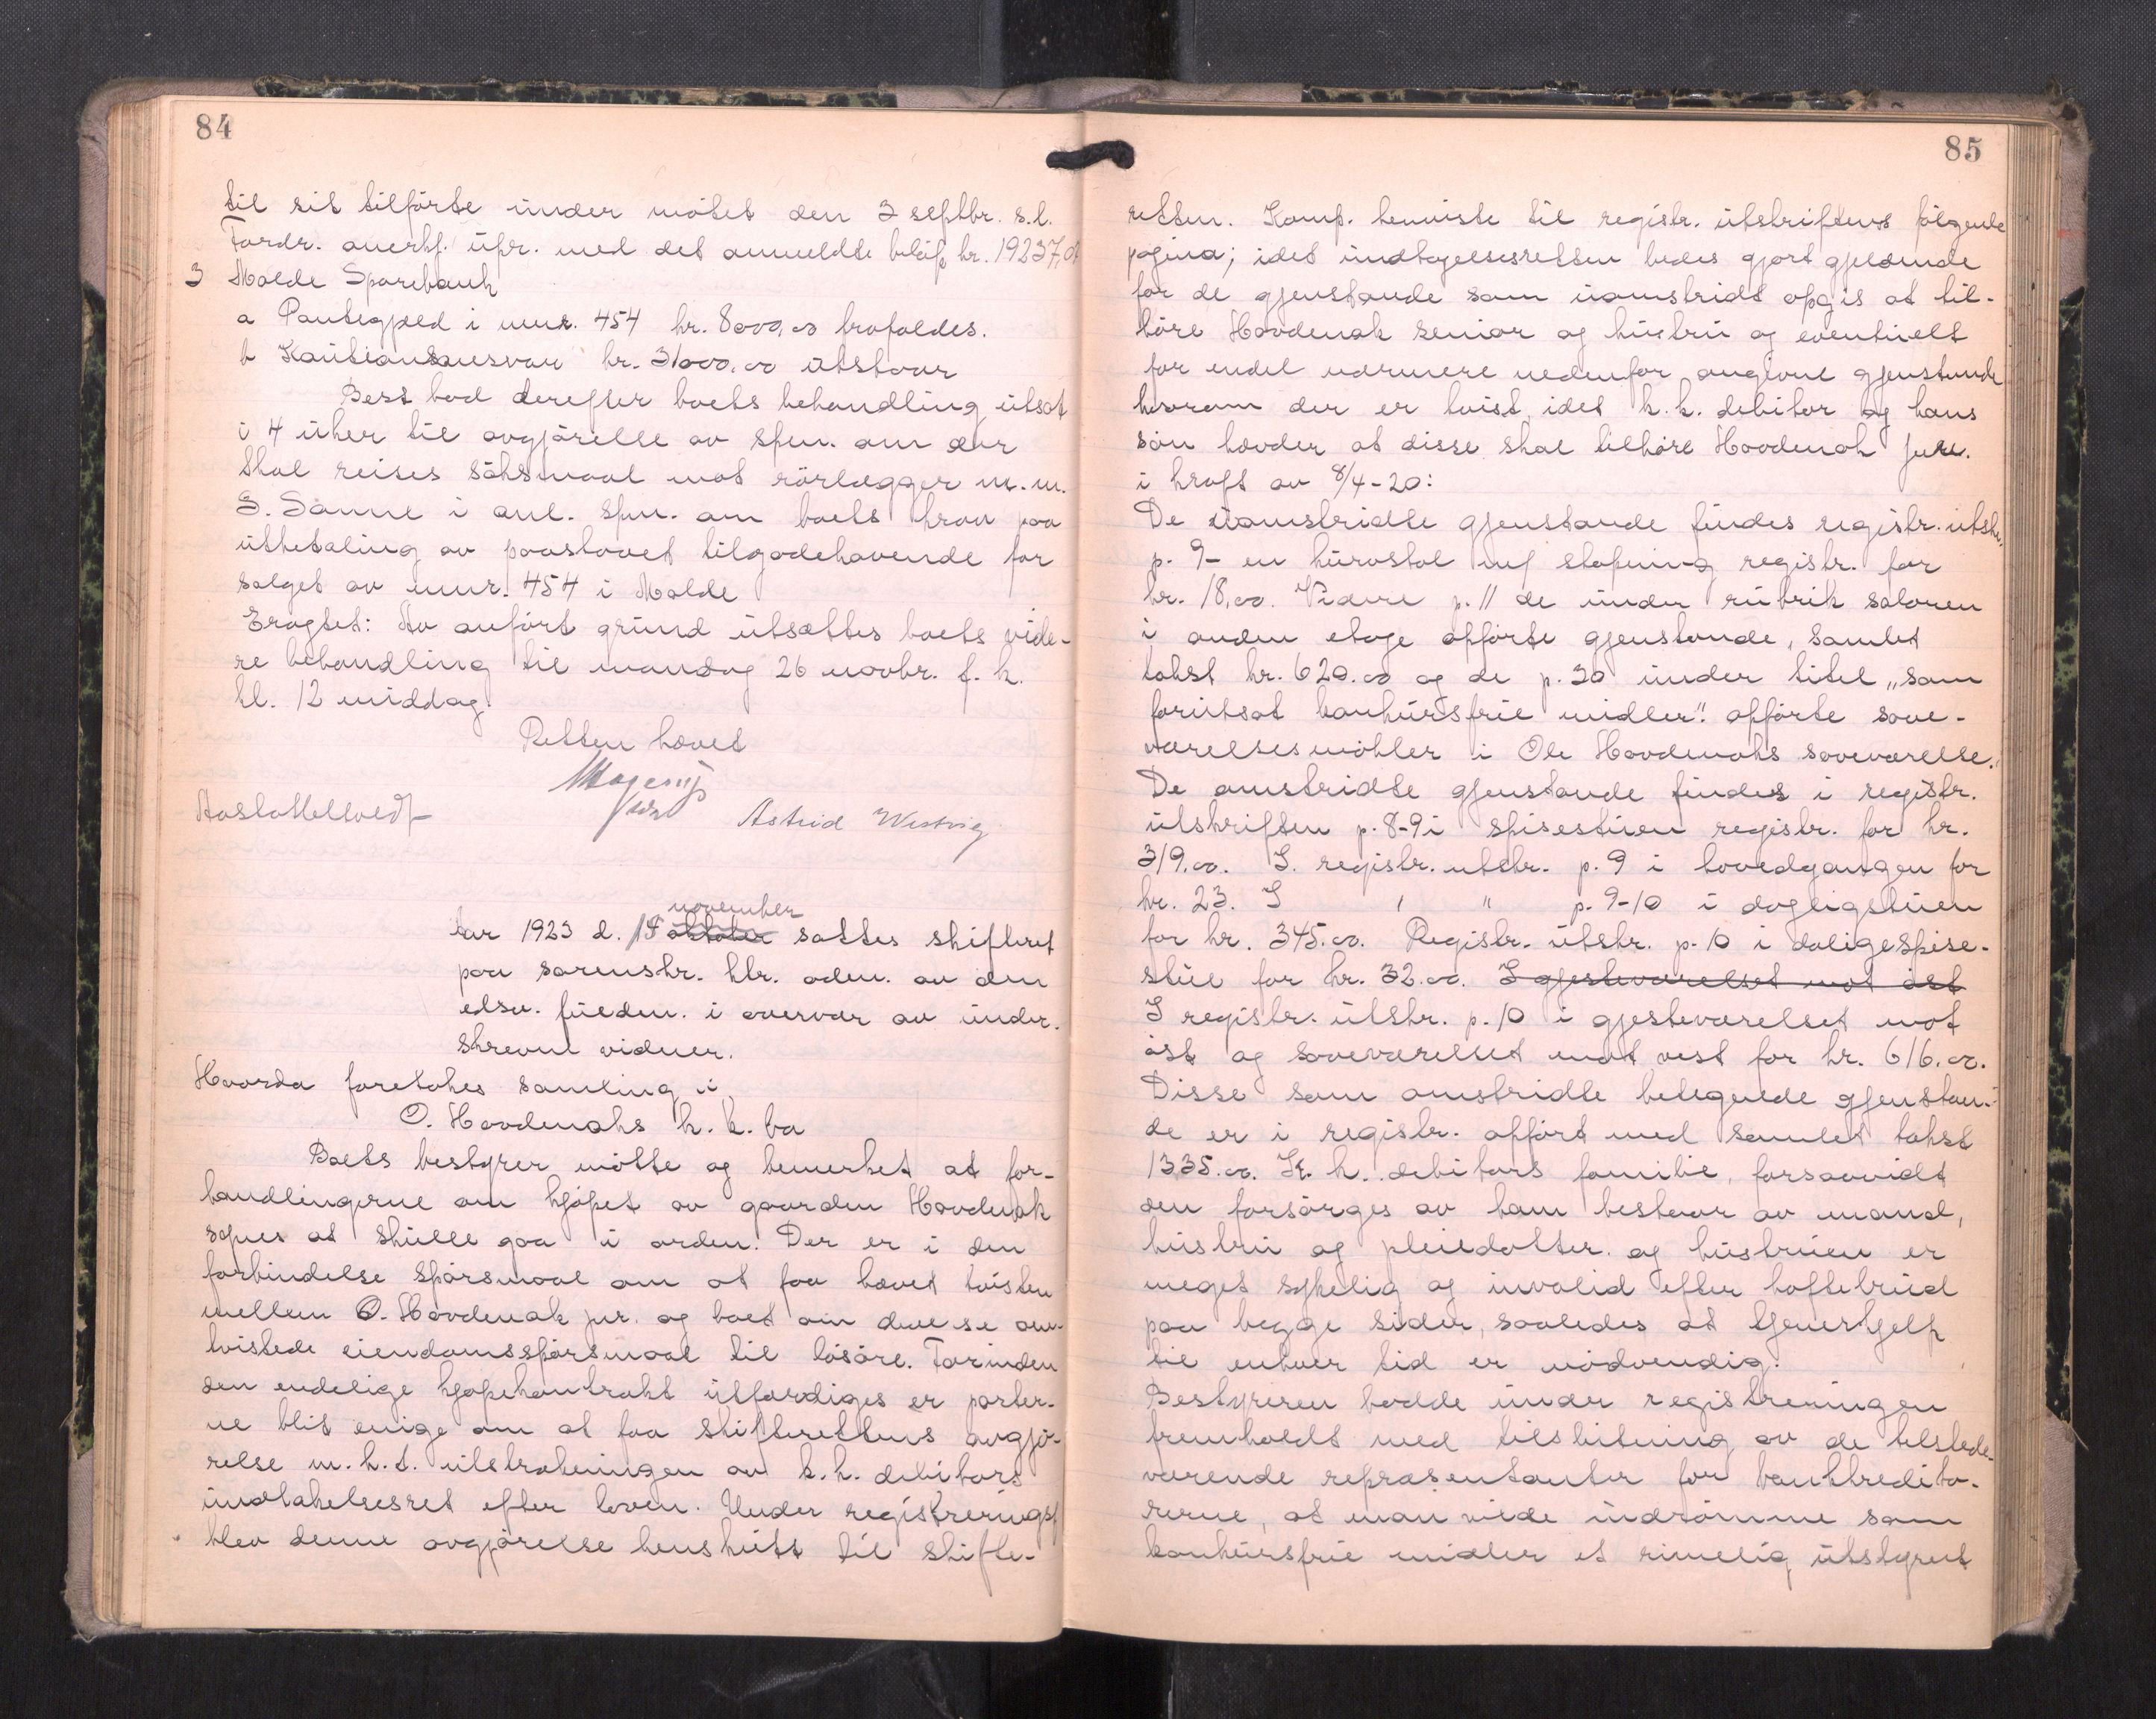 84
til sit tilførte under møtet den 3 septbr. s.l.
Fordr. anerkj. upr. med det anmeldte beløp kr. 19237,0
3 Molde Sparebank
a Pantegjæld i mnr. 454 kr. 8000,00 frafaldes.
b Kautionsansvar kr. 31000.00 utstaar
Best. bad derefter boets behandling utsat
i 4 uker til avgjørelse av spm. om der
skal reises søksmaal mot rørlægger m.m.
S. Sanne i anl. spm. om boets krav paa
utbetaling av paastaaet tilgodehavende for
salget av mnr. 454 i Molde
Eragtet: Av anført grund utsættes boets vide-
re behandling til mandag 26 novbr. f. k.
kl. 12 middag.
Retten hævet
Astrid Westvig
november
Aar 1923 d. 15 oktober sattes skifteret
paa sorenskr. ktr. adm. av den
edsv. fuldm. i overvær av under-
skrevne vidner.
Hvorda foretokes samling i
O. Hovdenaks k. k. bo
Boets bestyrer møtte og bemerket at for-
handlingerne om kjøpet av gaarden Hovdenak
synes at skulle gaa i orden. Der er i den
forbindelse spørsmaal om at faa hævet tvisten
mellem O. Hovdenak jnr. og boet om disse om-
tvistede eiendomsspørsmaal til løsøre. Forinden
den endelige kjøpekontrakt utfærdiges er parter-
ne blit enige om at faa skifterettens avgjø-
relse m.h.t. utstrækningen av k.k. debitors
undtakelsesret efter loven. Under registrerings
blev denne avgjørelse henskutt til skifte-
85
retten. Komp. henviste til registr. utskriftens følgende
pagina; idet undtagelsesretten bedes gjort gjeldende
for de gjenstande som uomstridt opgis at til-
høre Hovdenak senior og hustru og eventuelt
for endel nærmere nedenfor angivne gjenstande
hvorom der er tvist, idet k.k. debitor og hans
søn hævder at disse skal tilhøre Hovdenak junr.
i kraft av 8/4-20:
De uomstridte gjenstande findes registr. utskr.
p. 9- en kurvstol m/ stopning registr. for
kr. 18,00. Videre p. 11 de under rubrik salonen
i anden etage opførte gjenstande, samlet
takst kr. 620.00 og de p. 30 under titel „som
forutsat konkursfrie midler" opførte sove-
værelsesmøbler i Ole Hovdenaks soveværelse.
De omstridte gjenstande findes i registr.
utskriften p. 8-9 i spisestuen registr. for kr.
319.00. I. registr. utskr. p. 9 i hovedgangen for
kr. 23. I " " p. 9-10 i dagligstuen
for kr. 345.00. Registr. utskr. p. 10 i daligespise-
stue for kr. 32.00. I gjesteværelset mot øst
I registr. utskr. p. 10 i gjesteværelset mot
øst og soveværelset mot vest for kr. 616.00.
Disse som omstridte betegnede gjenstan-
de er i registr. opført med samlet takst
1335.00. K. k. debitors familie, forsaavidt
den forsørges av ham bestaar av mand,
hustru og pleiedatter og hustruen er
meget sykelig og invalid efter hoftebrud
paa begge sider, saaledes at tjenerhjelp
til enhver tid er nødvendig.
Bestyreren hadde under registreringen
fremholdt med tilslutning av de tilstede-
værende repræsentanter for bankkredito-
rerne, at man vilde indrømme som
konkursfrie midler et rimelig utstyret